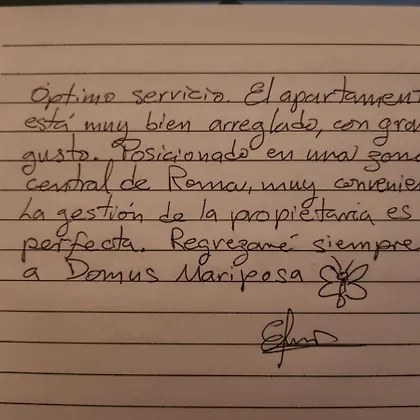 Óptimo servicio. El apartament
está muy bien arreglado, con gra
gusto. Posicionado en una zona
central de Roma, muy convenien
La gestión de la propietaria es
perfecta. Regrezamé siempre
a Domus Mariposa